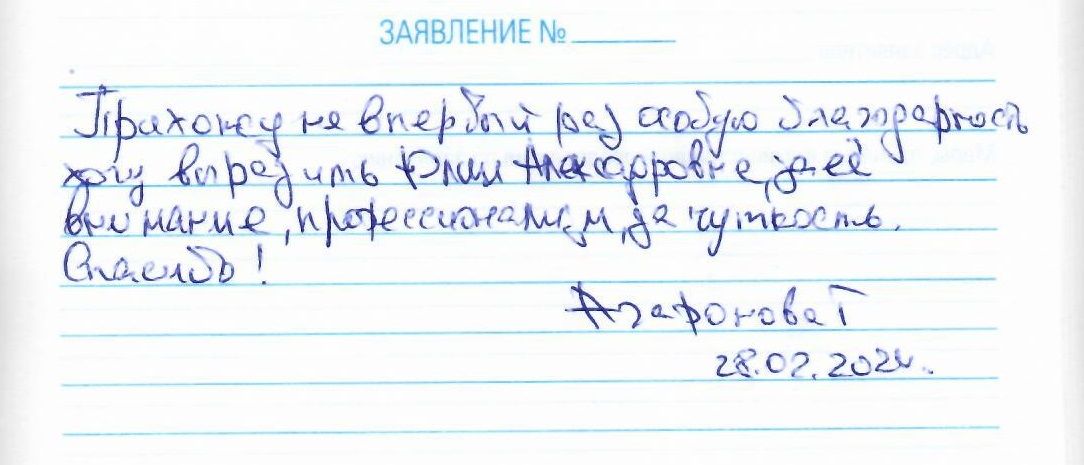 ЗАЯВЛЕНИЕ № ________
Прихожу не впервый раз особую благодарность
хочу выразить Юлии Алексадровне, за её
внимание, профессионализм, за чуткость.
Спасибо!
Агафонова Г
28.02.2024.